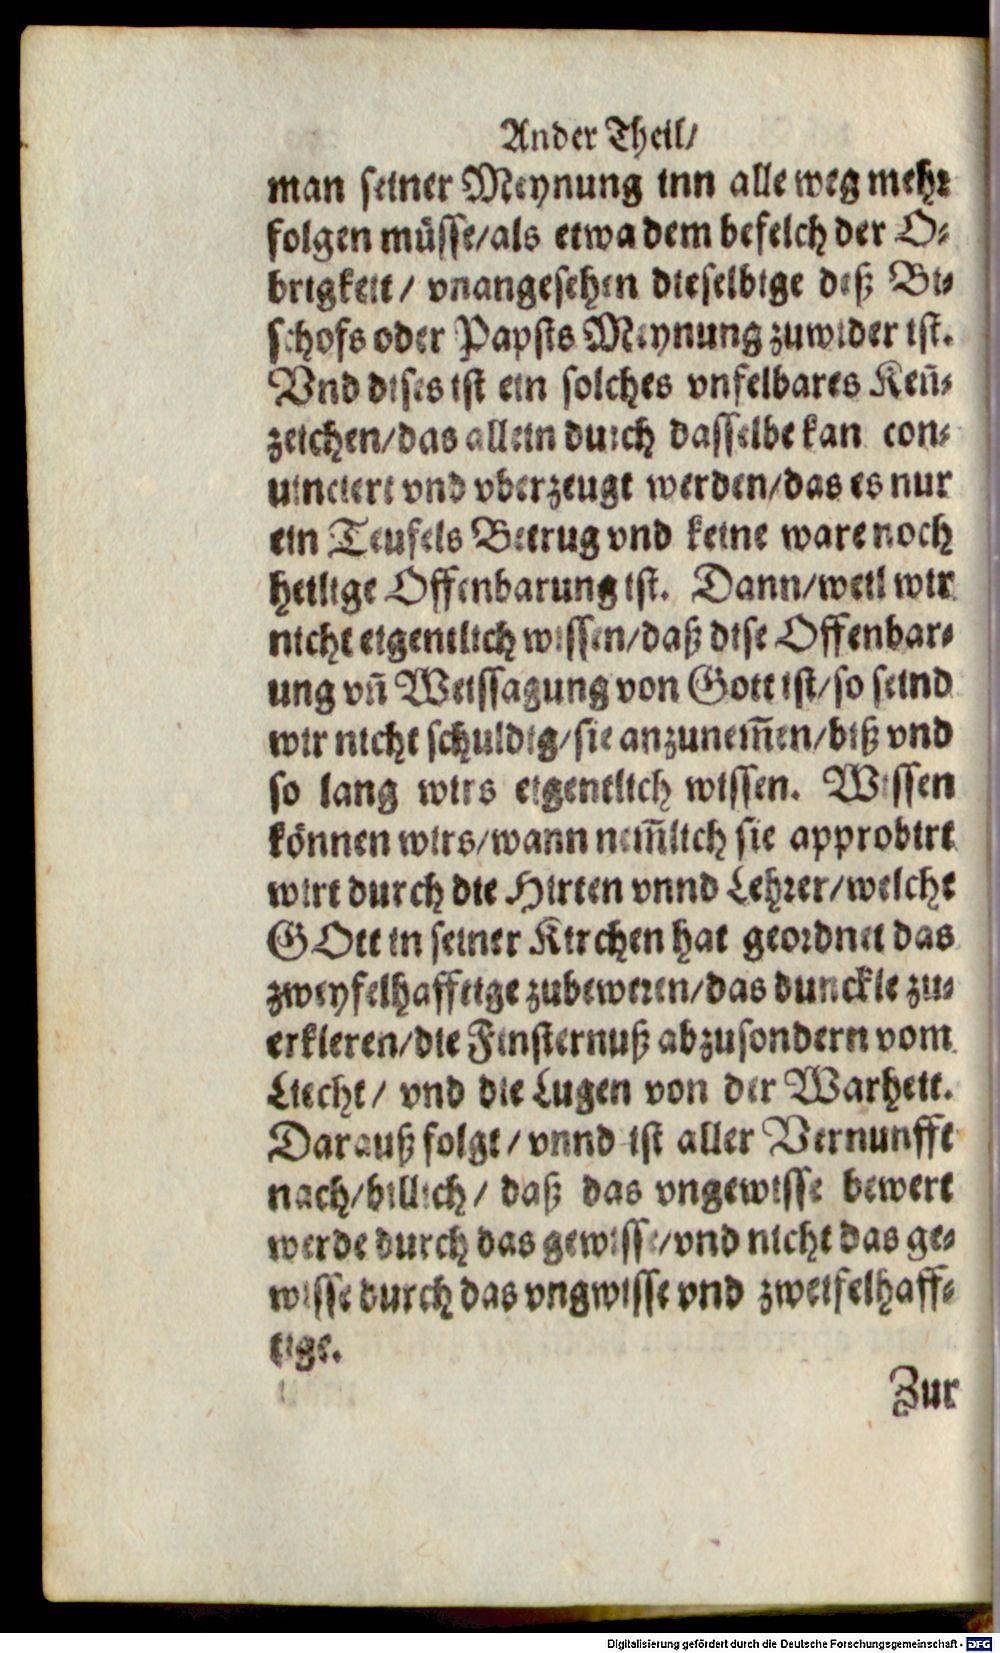 Ander Theil/
man seiner Meynung inn alle weg mehr
folgen müsse/als etwa dem befelch der O-
brigkeit/ vnangesehen dieselbige deß Bi-
schofs oder Papsts Meynung zuwider ist.
Vnd dises ist ein solches vnfelbares Keñ-
zeichen/das allein durch dasselbe kan con-
uinciert vnd vberzeugt werden/das es nur
ein Teufels Betrug vnd keine ware noch
heilige Offenbarung ist. Dann/weil wir
nicht eigentlich wissen/daß dise Offenbar-
ung vñ Weissagung von Gott ist/so seind
wir nicht schuldig/sie anzunem̃en/biß vnd
so lang wirs eigentlich wissen. Wissen
können wirs/wann nem̃lich sie approbirt
wirt durch die Hirten vnnd Lehrer/welche
GOtt in seiner Kirchen hat geordnet das
zweyfelhafftige zubeweren/das dunckle zu-
erkleren/die Finsternuß abzusondern vom
Liecht/ vnd die Lugen von der Warheit.
Darauß folgt/vnnd ist aller Vernunfft
nach/billich/ daß das vngewisse bewert
werde durch das gewisse/vnd nicht das ge-
wisse durch das vngwisse vnd zweifelhaff-
tige.
Zur
Digitalisierung gefördert durch die Deutsche Forschungsgemeinschaft - DFG